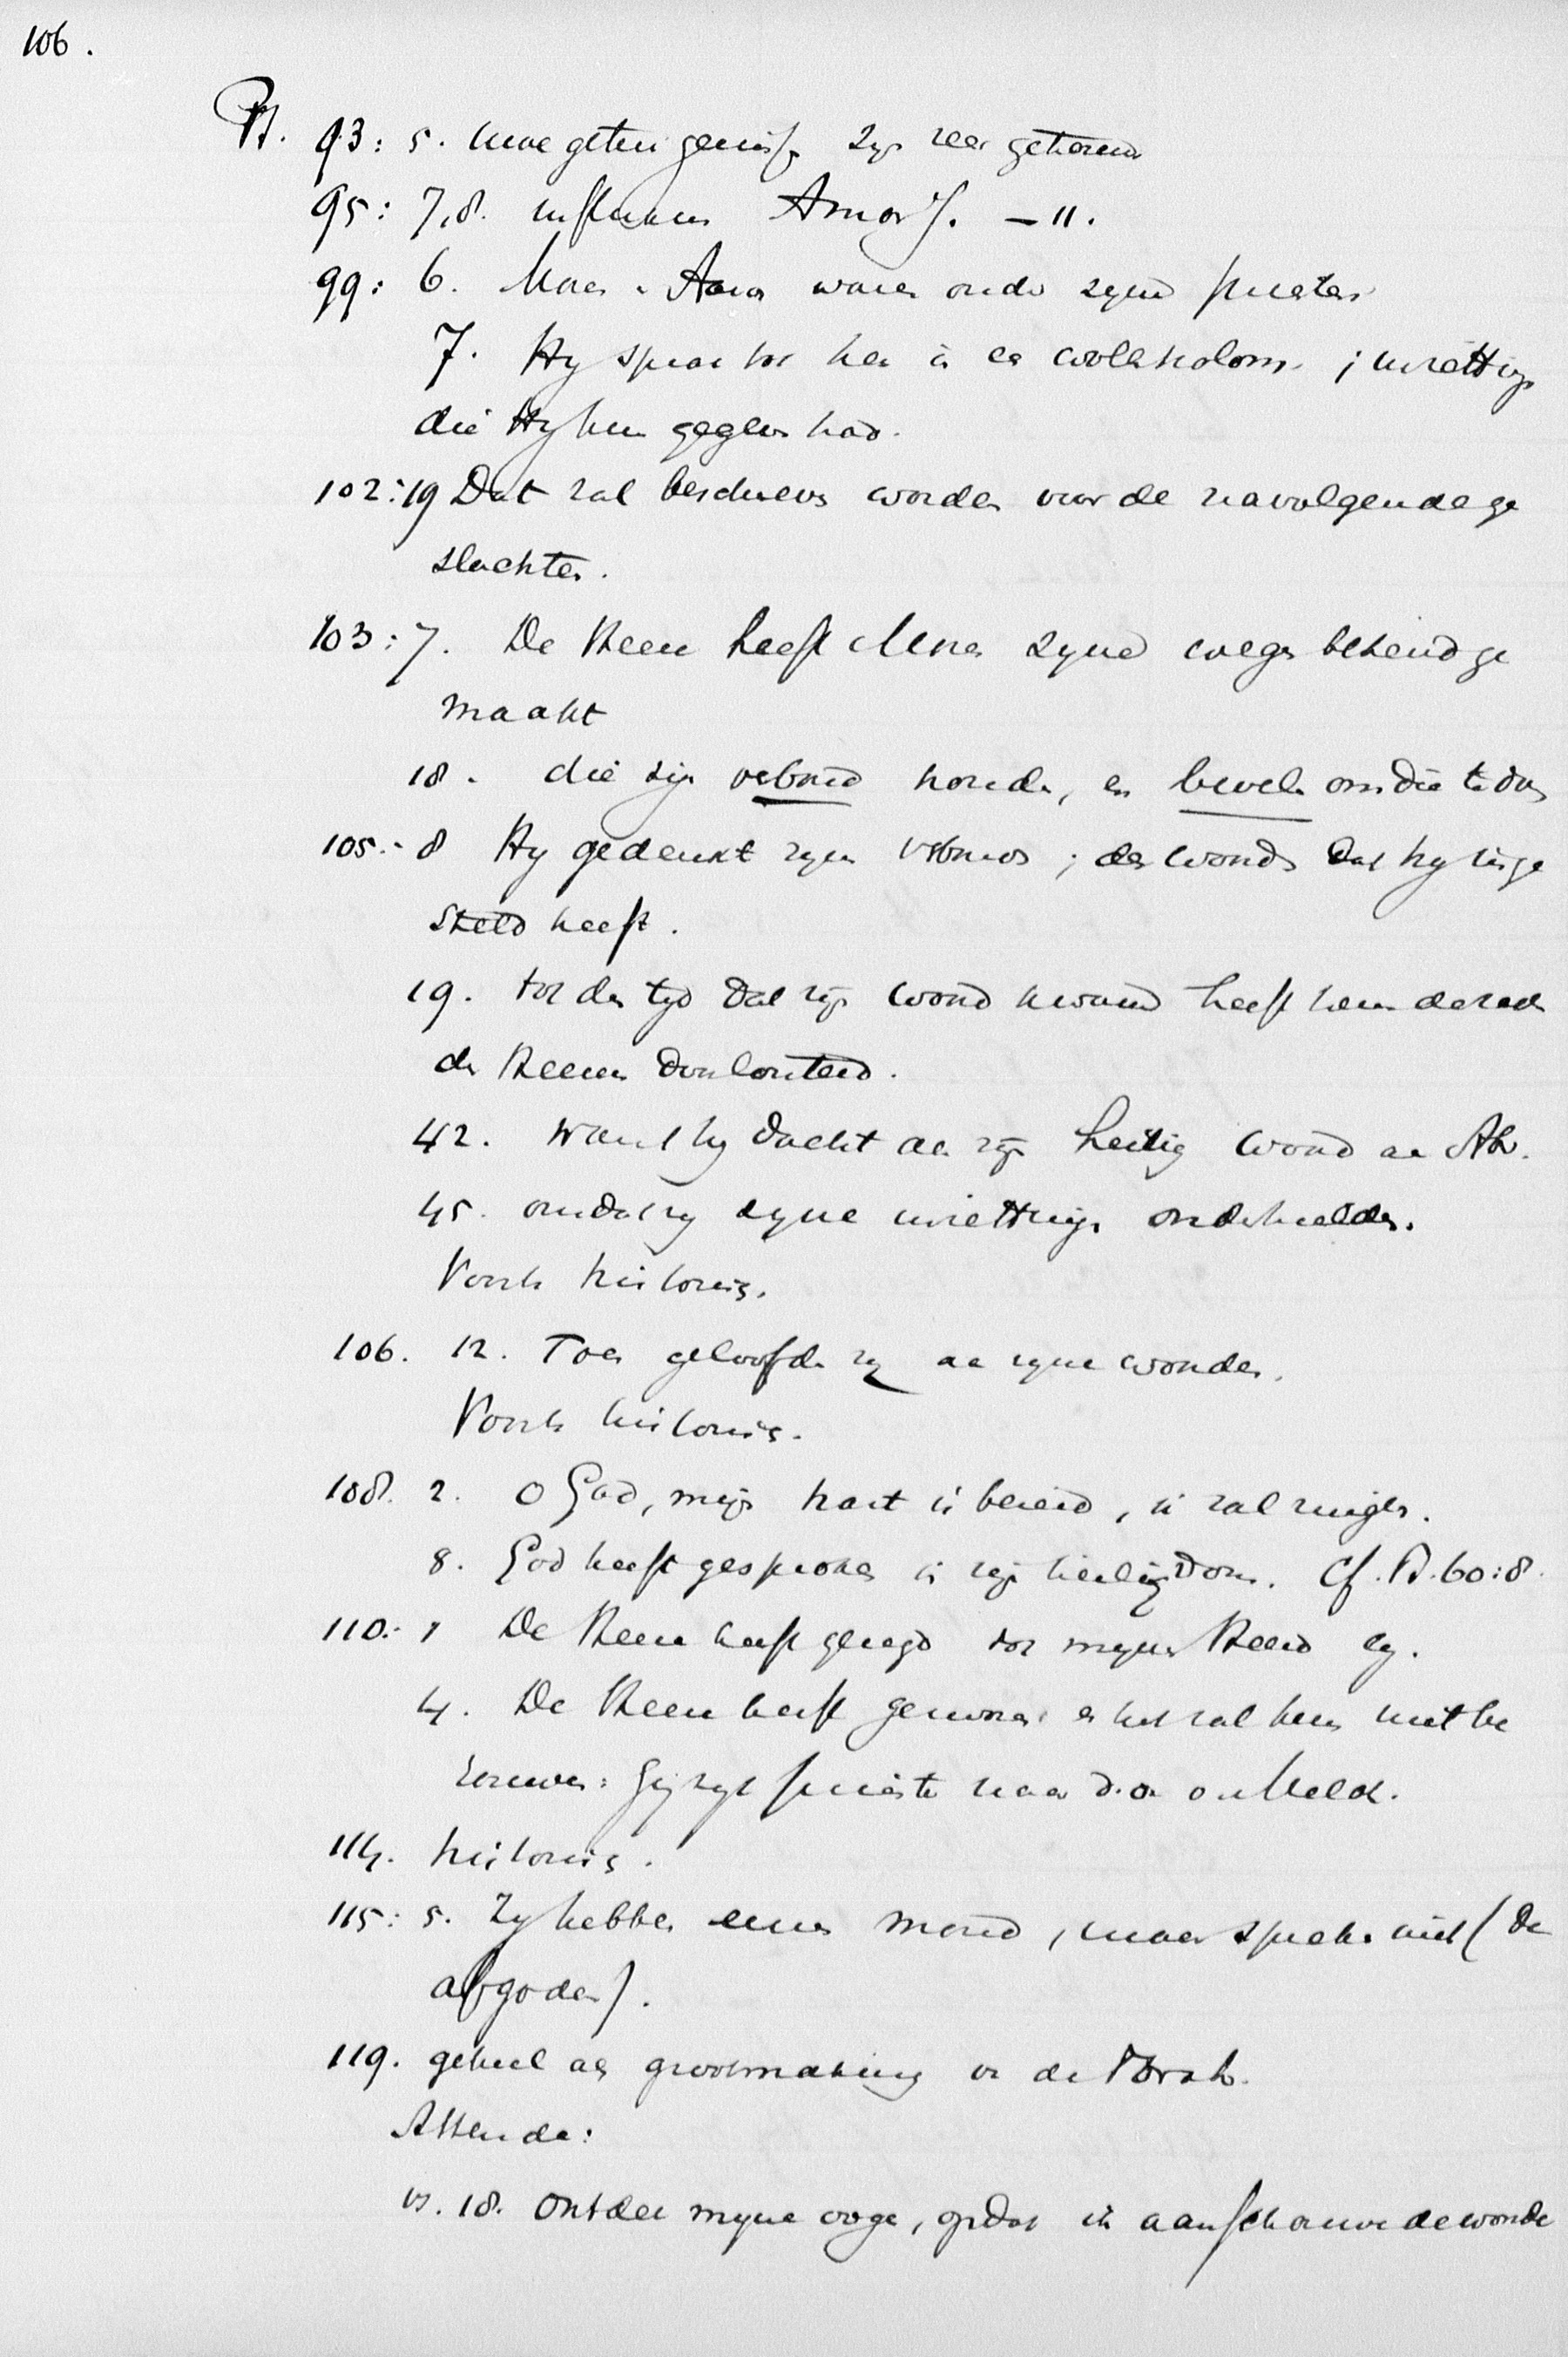 106.
Ps. 93: 5. Uwe getuigeniss. zijn zeer getrouw
95: 7,8. Amos 7. – 11.
99: 6. Mozes en Aaron waren onder zijne priesters
7. Hij sprak tot hen in een wolkkolom. ; inzettingen
die Hij hun gegeven had.
102:19 Dat zal beschreven worden voor de navolgende ge
slachten.
103: 7. De Heere heeft Mozes zijne wegen bekend ge
maakt
18. die zijn verbond houden, en bevelen om die te doen
105:8 Hij gedenkt zijn verbond ; des woords dat hij inge
steld heeft.
19. tot den tijd dat zijn woord kwam heeft hem de rede
des Heeren doorlouterd.
42. Want hij dacht aan zijn heilig woord aan Abr.
45. omdat zij zijne inzettingen onderhielden.
Voorts historie.
106. 12. Toen geloofden zij aan zijne woorden.
Voorts historie.
108. 2. O God, mijn hart is bereid, ik zal zingen.
8. God heeft gesproken in zijn heiligdom. Cf. Ps. 60:8.
110:1 De Heere heeft gezegd tot mijnen Heere
4. De Heere heeft gezworen en het zal hem niet be
rouwen: Gij zijt priester naar d. o. v. Melch.
114. historie.
115: 5. Zij hebben eenen mond, maar spreken niet (de
afgoden).
119. geheel als grootmaking v. de Thorah.
Attende:
vs. 18. Ontdek mijne oogen, opdat ik aanschouwe de wonde